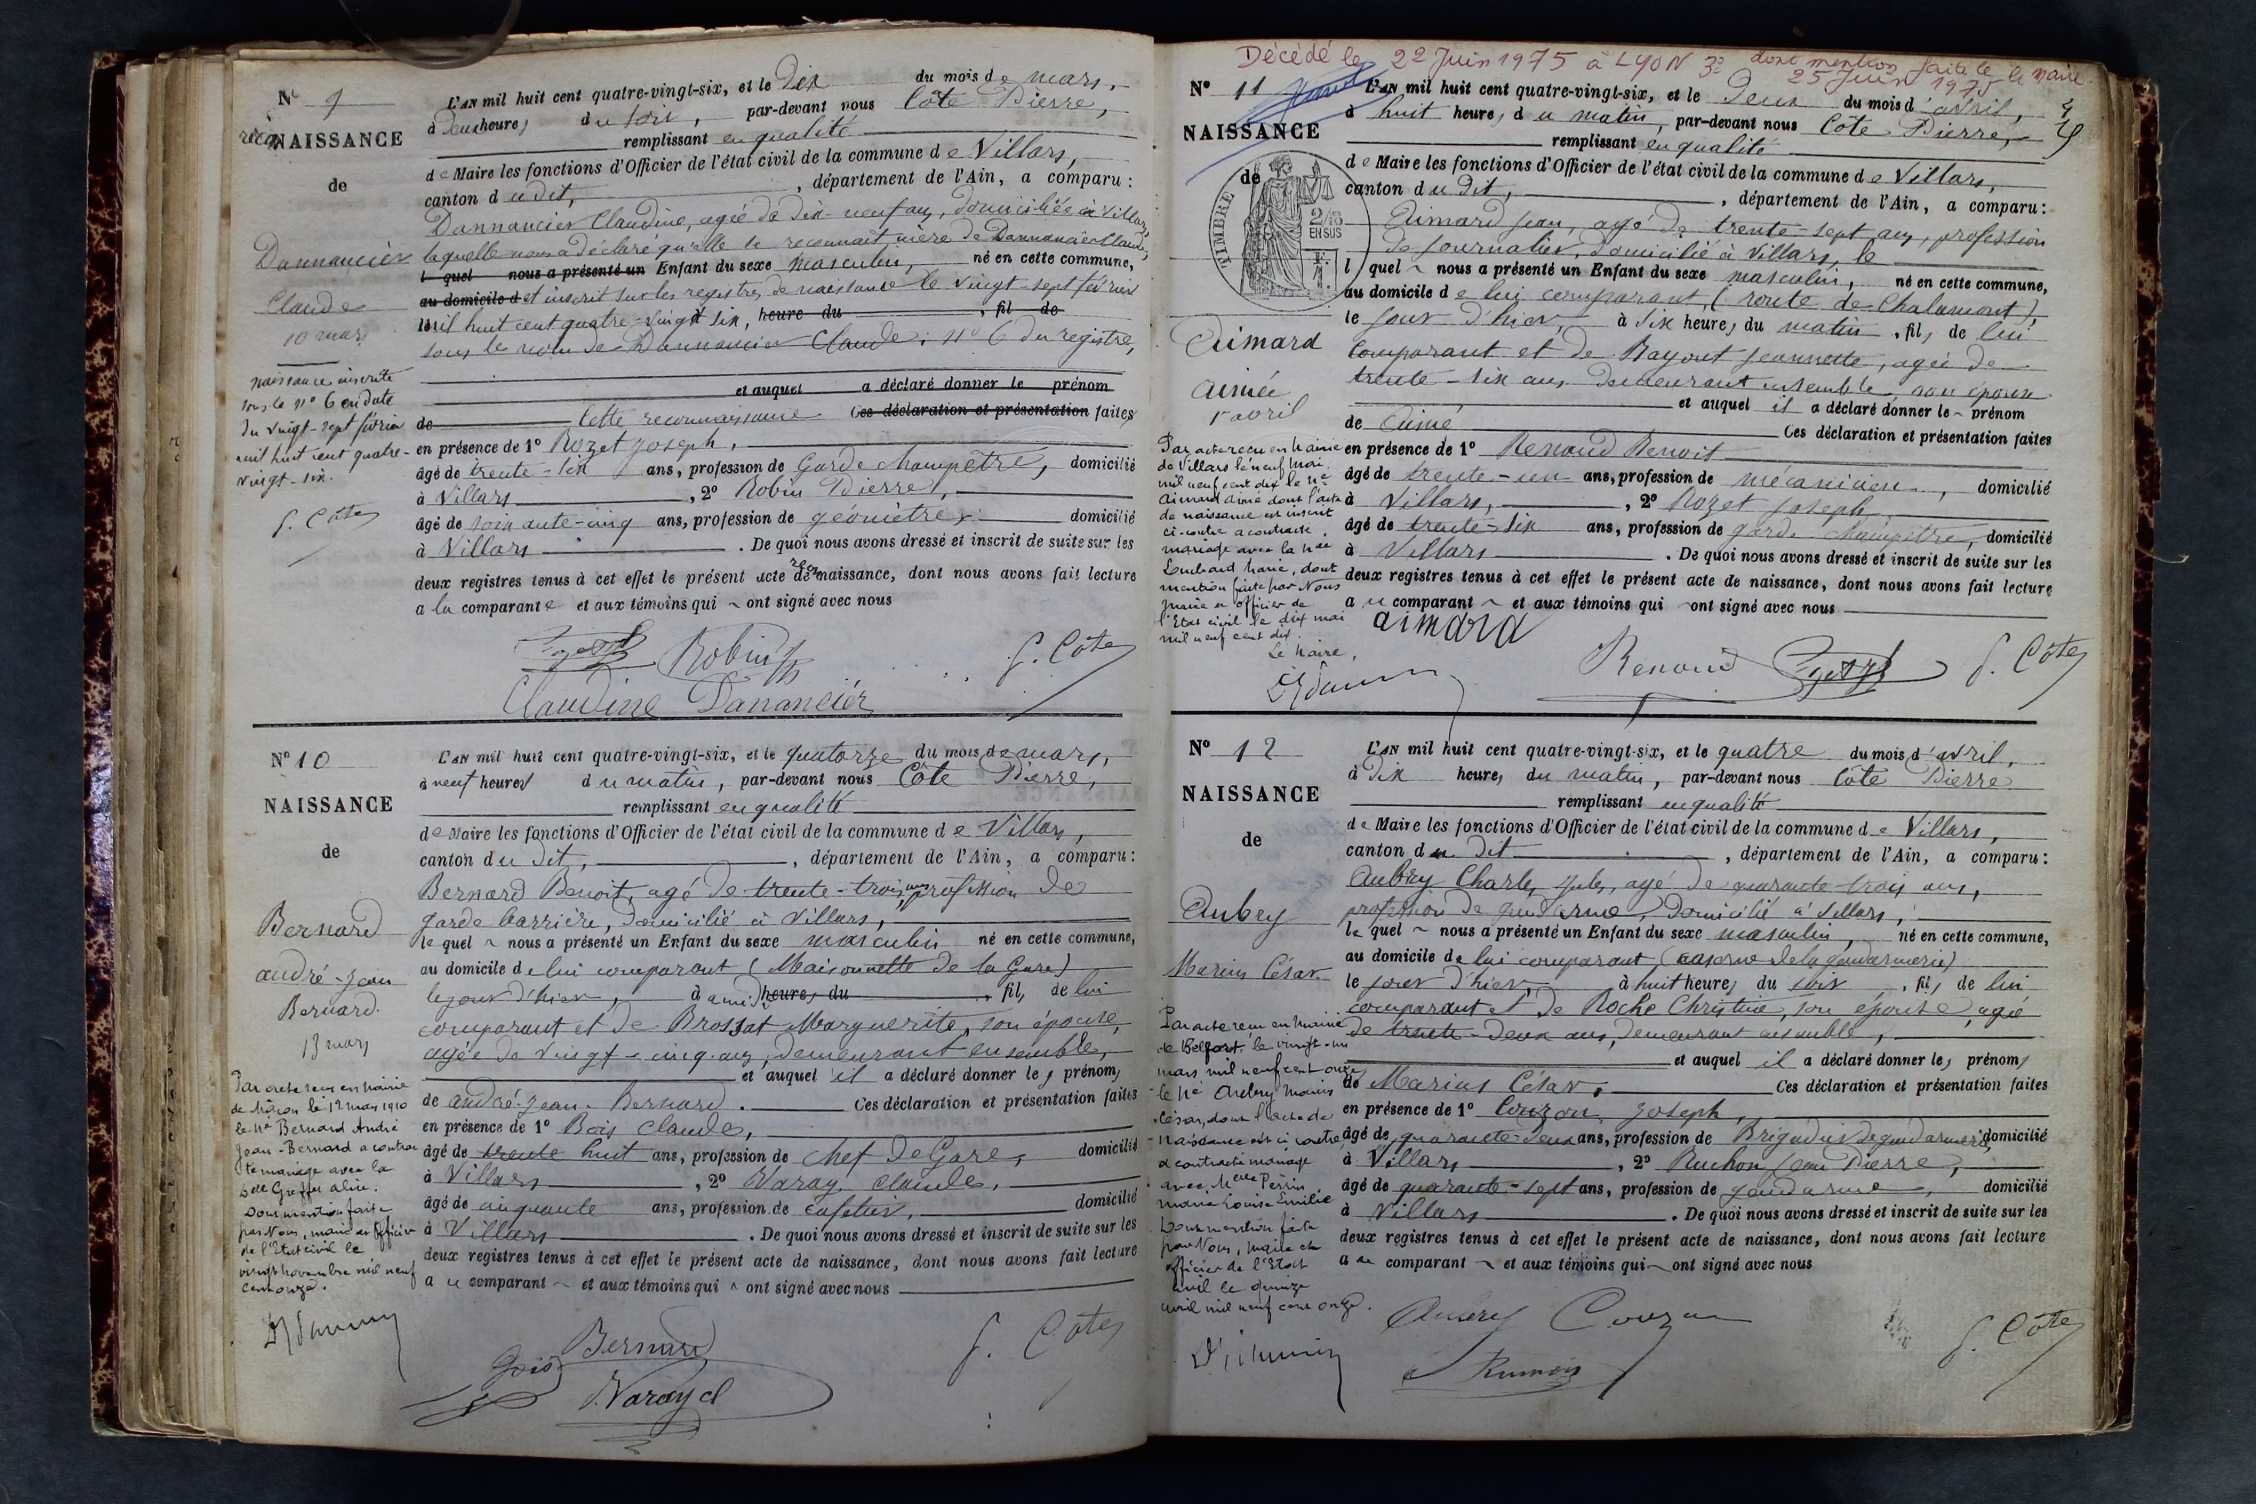 N° 9
reco
NAISSANCE
de
Dannancier
Claude
10 mars
naissance inscrite
sous le n° 6 en date
du vingt-sept février
mil huit cent quatre-
vingt-six.
P. Côte
L'AN mil huit cent quatre-vingt-six, et le Dix du mois de mars,
à deux heures du soir, par-devant nous Côte Pierre,
remplissant en qualité
de Maire les fonctions d'Officier de l'état civil de la commune de Villars,
canton du dit, département de l'Ain, a comparu:
Dannancier Claudine, agée de dix-neuf ans, domiciliée à Villars,
laquelle nous a déclaré qu'elle se reconnait mère de Dannancier Claude,
l quel nous a présenté un Enfant du sexe masculin, né en cette commune,
au domicile d et inscrit sur les registres de naissance le vingt-sept février
mil huit cent quatre-vingt six, heure du , fil de
sous le nom de Dannancier Claude; n° 6 du registre,
et auquel a déclaré donner le prénom
de Cette reconnaissance Ces déclaration et présentation faites
en présence de 1° Rozet Joseph,
âgé de trente-six ans, profession de Garde champêtre, domicilié
à Villars, 2° Robin Pierre,
âgé de soixante-cinq ans, profession de géomètre, domicilié
à Villars. De quoi nous avons dressé et inscrit de suite sur les
deux registres tenus à cet effet le présent acte de reconnaissance, dont nous avons fait lecture
a la comparante et aux témoins qui ont signé avec nous
Robin
P. Côte
Claudine Danancier
N° 10
NAISSANCE
de
Bernard
andré-Jean
Bernard.
13 mars
Par acte reçu en mairie
de le 12 mars 1910
le né Bernard André
Jean-Bernard a contrac
té mariage avec la
Delle Greffer Aline.
Dont mention faite
par Nous, maire et officier
de l'Etat civil le
vingt novembre mil neuf
cent onze.
L'AN mil huit cent quatre-vingt-six, et le quatorze du mois de mars,
à neuf heures du matin, par-devant nous Côte Pierre,
remplissant en qualité
de Maire les fonctions d'Officier de l'état civil de la commune de Villars,
canton du dit, département de l'Ain, a comparu:
Bernard Benoit, agé de trente-trois ans, profession de
garde barrière, domicilié à Villars,
le quel nous a présenté un Enfant du sexe masculin né en cette commune,
au domicile de lui comparant (Maisonnette de la Gare)
le jour d'hier, à midi heures du , fils de lui
comparant et de Brossat Marguerite, son épouse,
agée de vingt-cinq ans, demeurant ensemble,
et auquel il a déclaré donner les prénoms
de andré-Jean-Bernard. Ces déclaration et présentation faites
en présence de 1° Bois Claude,
âgé de trente huit ans, profession de chef de Gare, domicilié
à Villars, 2° Varay Claude,
âgé de cinquante ans, profession de cafetier, domicilié
à Villars. De quoi nous avons dressé et inscrit de suite sur les
deux registres tenus à cet effet le présent acte de naissance, dont nous avons fait lecture
a u comparant et aux témoins qui ont signé avec nous
Bernard
P. Côte
Bois
Varay cl
Décédé le 22 Juin 1975 à LYON 3e dont mention faite le
25 Juin 1975 le maire.
N° 11
NAISSANCE
de
TIMBRE
2/10
EN SUS
Aimard
Aimée
1er avril
Par acte reçu en mairie
de Villars le neuf mai
mil neuf cent dix le né
Aimard Aimé dont l'acte
de naissance est inscrit
ci-contre a contracté
mariage avec la née
Lombard Marie, dont
mention faite par Nous
maire et officier de
l'Etat civil le dix mai
mil neuf cent dix.
Le Maire,
L'AN mil huit cent quatre-vingt-six, et le Deux du mois d'avril,
à huit heures du matin, par-devant nous Côte Pierre,
remplissant en qualité
de Maire les fonctions d'Officier de l'état civil de la commune de Villars,
canton du dit, département de l'Ain, a comparu:
Aimard Jean, agé de trente-sept ans, profession
de Journalier, domicilié à Villars, le
l quel nous a présenté un Enfant du sexe masculin, né en cette commune,
au domicile de lui comparant, (route de Chalamont),
le jour d'hier, à six heures du matin, fils de lui
comparant et de Bayout Jeannette, agée de
trente-six ans demeurant ensemble son épouse
et auquel il a déclaré donner le prénom
de Aimé Ces déclaration et présentation faites
en présence de 1° Renaud Benoit
âgé de trente-un ans, profession de mécanicien, domicilié
à Villars, 2° Rozet Joseph,
âgé de trente-six ans, profession de garde champêtre, domicilié
à Villars. De quoi nous avons dressé et inscrit de suite sur les
deux registres tenus à cet effet le présent acte de naissance, dont nous avons fait lecture
a u comparant et aux témoins qui ont signé avec nous
aimard
Renaud
P. Côte
N° 12
NAISSANCE
de
Aubry
Marius César
Par acte reçu en mairie
de Belfort, le vingt-un
mars mil neuf cent onze
le né Aubry Marius
César, dont l'acte de
naissance est ci contre
a contracté mariage
avec Melle Perrin
Marie Louise Emilie
Dont mention faite
par Nous, maire et
officier de l'Etat
civil le quinze
avril mil neuf cent onze.
L'AN mil huit cent quatre-vingt-six, et le quatre du mois d'avril,
à Dix heures du matin, par-devant nous Côte Pierre
remplissant en qualité
de Maire les fonctions d'Officier de l'état civil de la commune de Villars,
canton du Dit, département de l'Ain, a comparu:
Aubry Charles Jules, agé de quarante-trois ans,
profession de gendarme, Domicilié à Villars,
le quel nous a présenté un Enfant du sexe masculin, né en cette commune,
au domicile de lui comparant, (caserne de la gendarmerie)
le jour d'hier, à huit heures du soir, fils de lui
comparant et de Roche Christine, son épouse, agée
de trente-deux ans, demeurant ensemble,
et auquel il a déclaré donner les prénoms
de Marius César. Ces déclaration et présentation faites
en présence de 1° Couzon Joseph,
âgé de quarante-deux ans, profession de Brigadier de gendarmerie, domicilié
à Villars, 2° Ruchon Jean Pierre,
âgé de quarante-sept ans, profession de gendarme, domicilié
à Villars. De quoi nous avons dressé et inscrit de suite sur les
deux registres tenus à cet effet le présent acte de naissance, dont nous avons fait lecture
a u comparant et aux témoins qui ont signé avec nous
Aubry Couzon
P. Côte